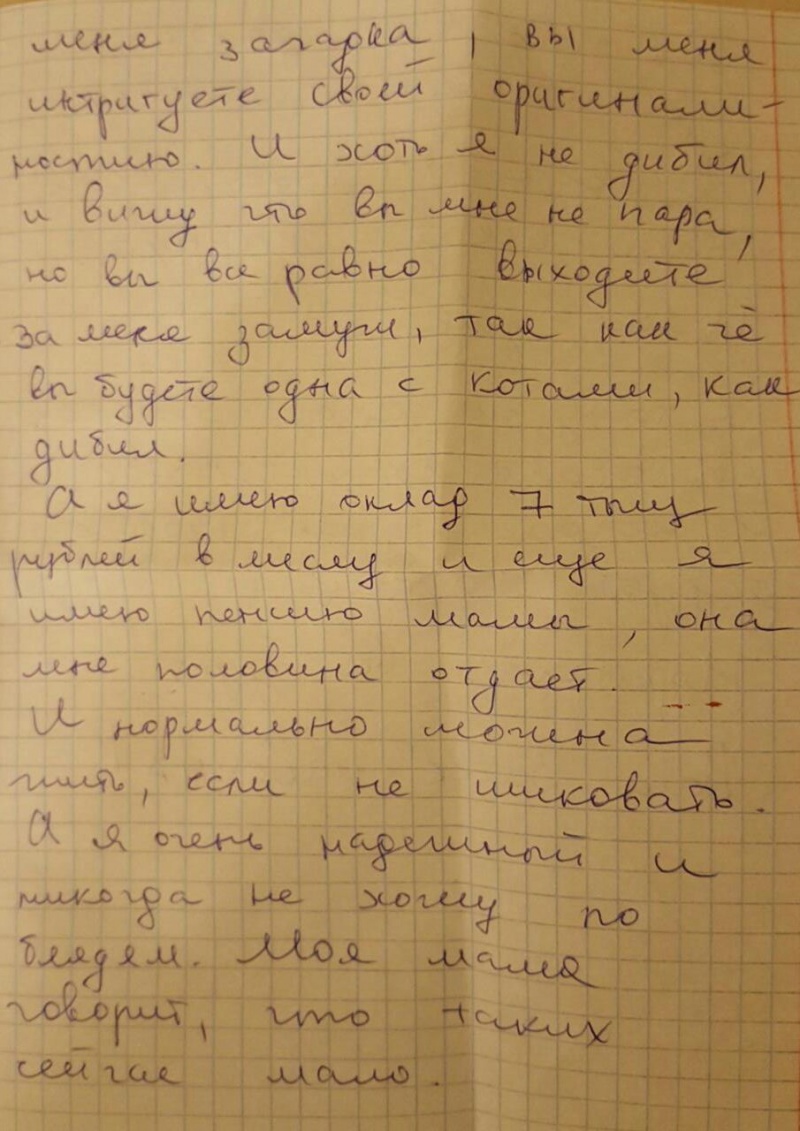 меня загадка, вы меня
интригуете своей оригинали-
ностию. И хоть я не дибил,
и вижу что вы мне не пара,
но вы все равно выходите
за меня замуш, так как чё
вы будете одна с котами, как
дибил.
А я имею оклад 7 тыщ
рублей в месяц и еще я
имею пенсию мамы, она
мне половина отдает.
И нормально можна
жить, если не шиковать.
А я очень надешный и
никогда не хожу по
блядям. Моя мама
говорит, что таких
сейчас мало.